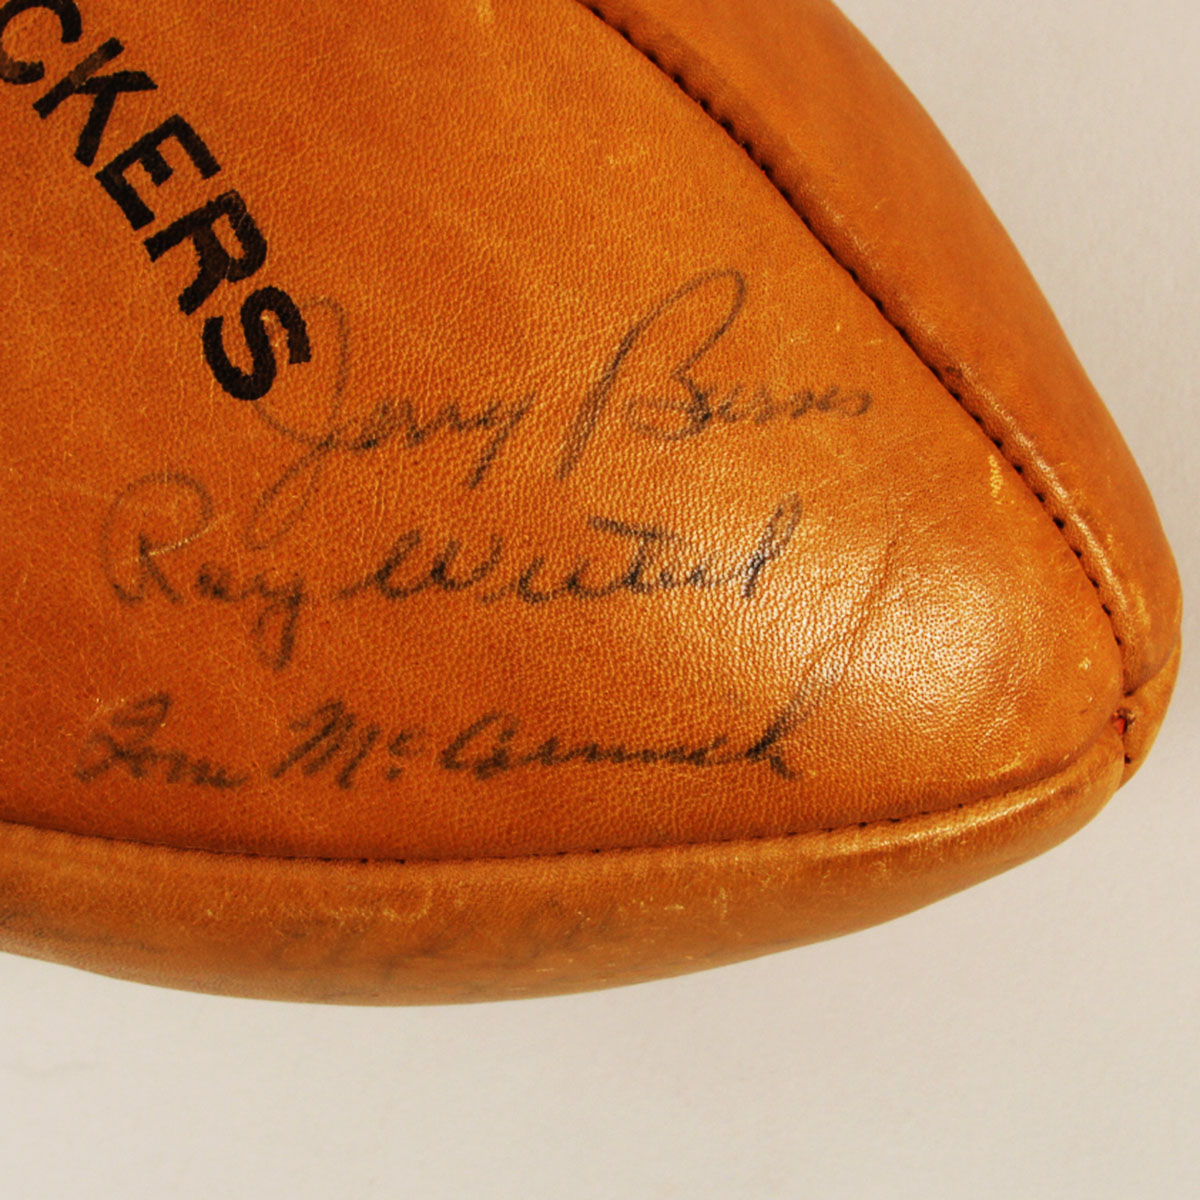 CKERS
Jerry Burns
Ray Wietecha
Tom McCormick